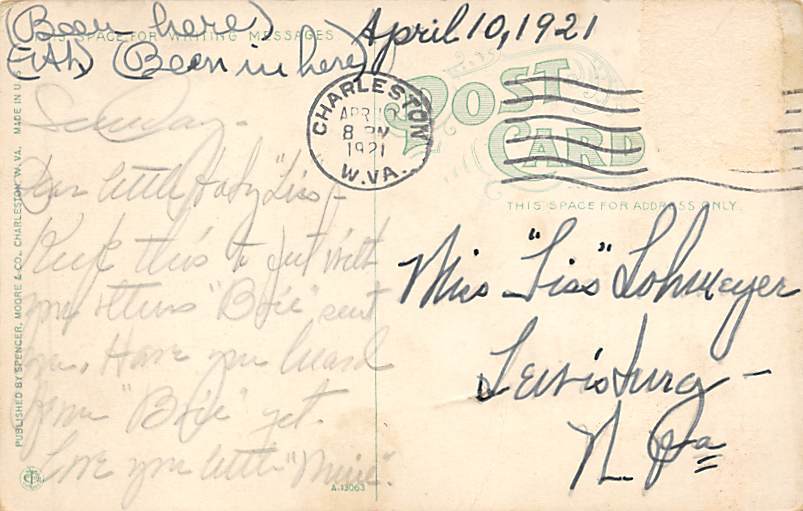 (Been here)
THIS SPACE FOR WRITING MESSAGES
(Been in here)
April 10, 1921
POST
CARD
CHARLESTON
APR 10
8 PM
1921
W.VA.
THIS SPACE FOR ADDRESS ONLY.
Sunday -
Dear little baby "Liss" -
Keep this to put with
your others "Boze" sent
you. Have you heard
from "Boze" yet.
Love you little "Mine".
Miss "Liss" Lohmeyer
Lewisburg -
W. Va
PUBLISHED BY SPENCER, MOORE & CO., CHARLESTON, W. VA. MADE IN U.S.
A-13063